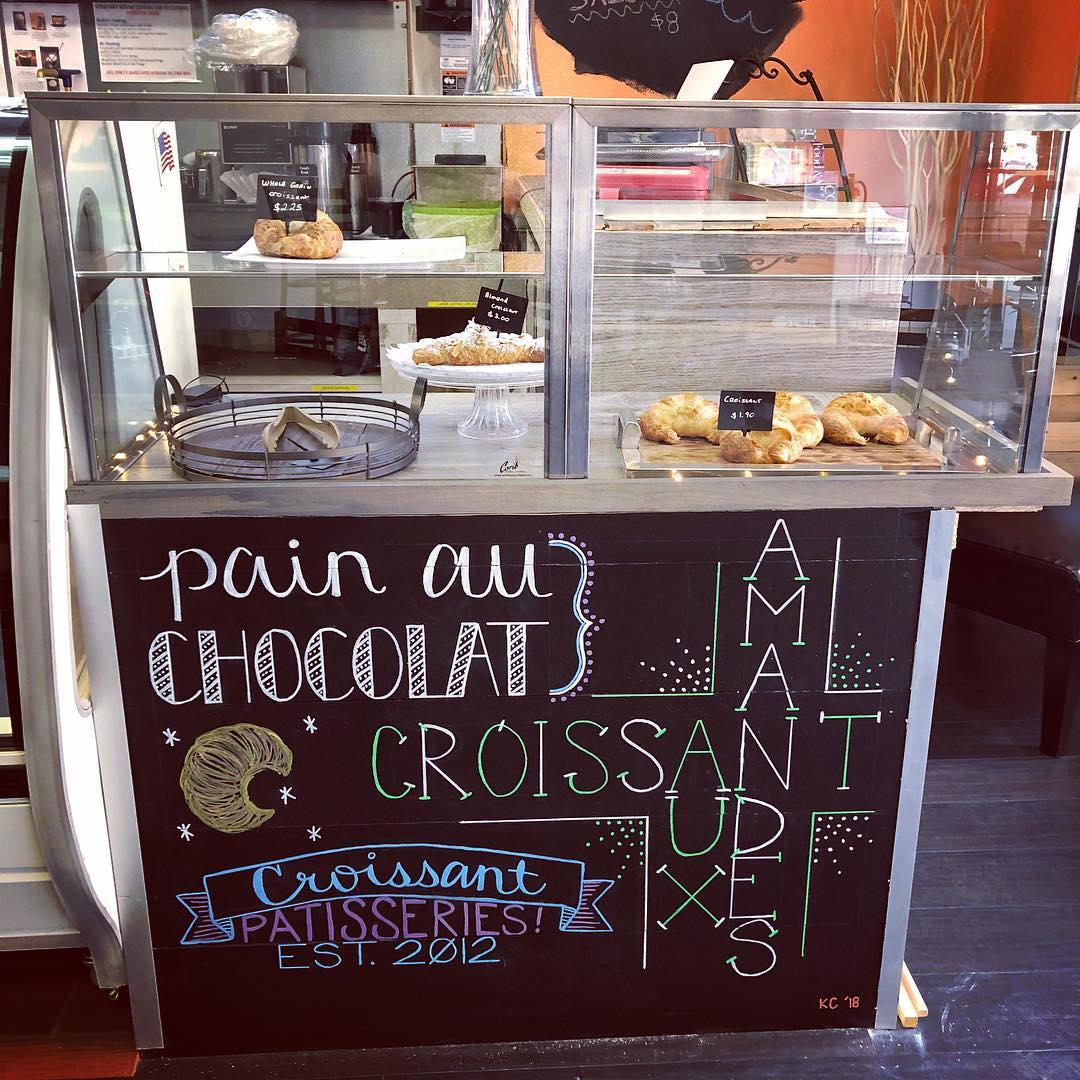 $8
BUNN
WHOLE GRAIN
CROISSANT
$2.25
Almond
Croissant
$3.00
CROISSANT
$1.90
pain au
CHOCOLAT
CROISSANT
AUX
AMANDES
Croissant
PATISSERIES!
EST. 2012
KC '18